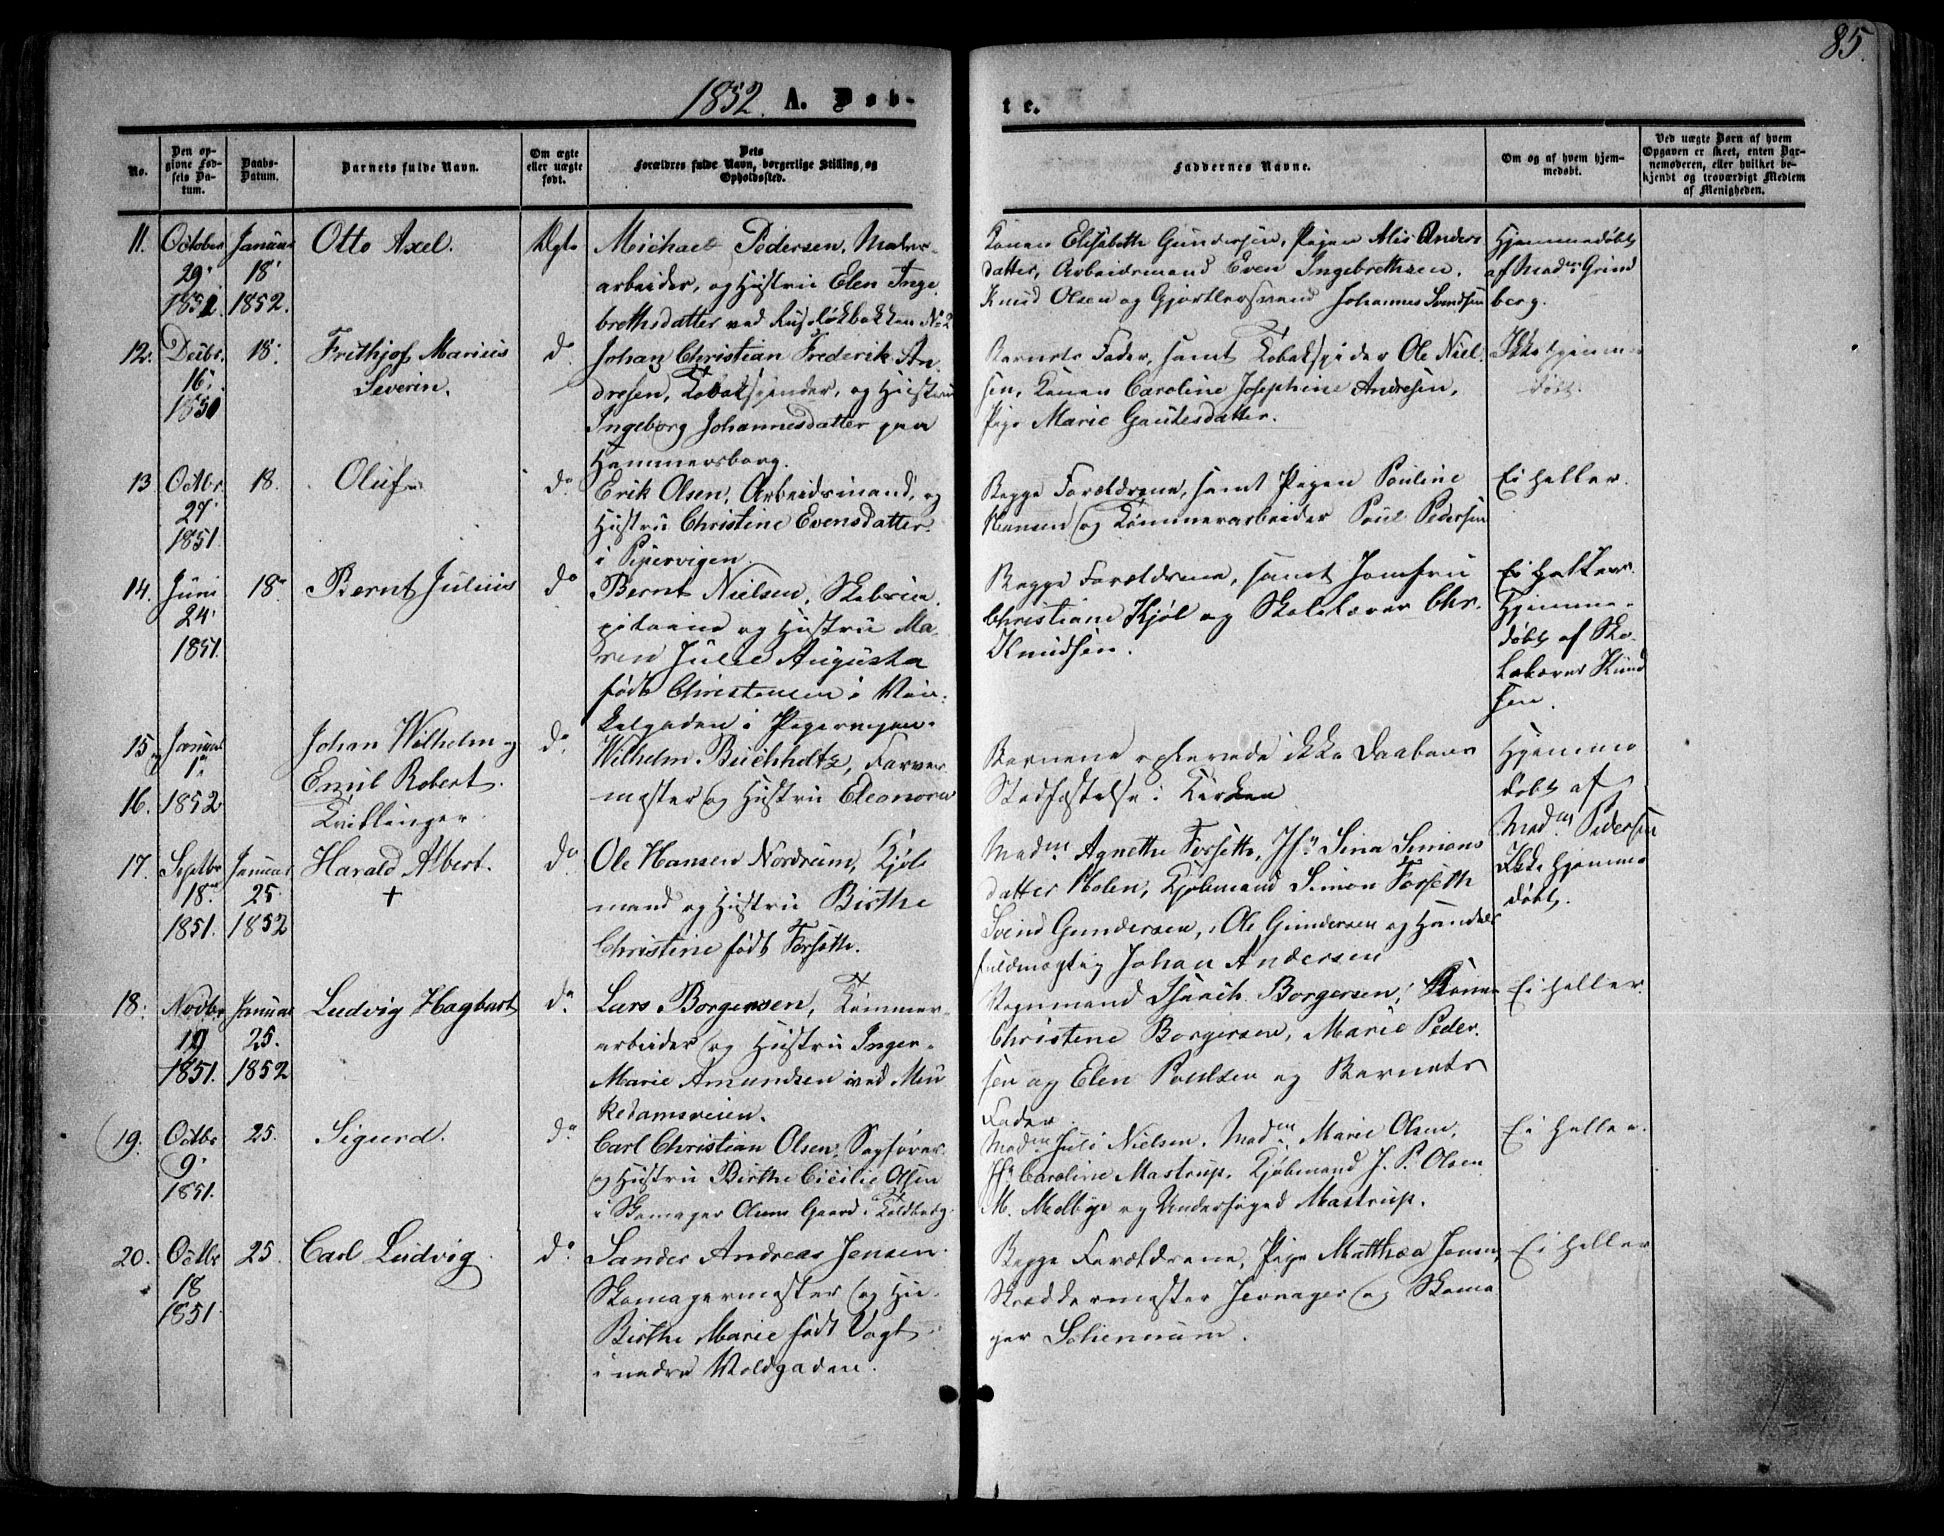 85.
1852. A. Døb-
te.
No.
Den op-
givne Fød-
sels Da-
tum.
Daabs-
Datum.
Barnets fulde Navn.
Om ægte
eller uægte
født.
Dets
Forældres fulde Navn, borgerlige Stilling, og
Opholdssted.
Faddernes Navne.
Om og af hvem hjem-
medøbt.
Ved uægte Børn af hvem
Opgaven er skeet, enten Bar-
nemoderen, eller hvilket be-
kjendt og troværdigt Medlem
af Menigheden.
11.
October
29.
1851
Januar
18.
1852.
Otto Axel.
Ægte
Michael Pedersen, 
arbeider, og Hustru Elen Inge
brethsdatter ved Ruseløkbakken No 2
Konen Elisabeth Gundersen, Pigen Anders
datter, Arbeidsmand Even Ingebrethsen.
Knud Olsen og Gjørtlersvend Johannes Svendsen
Hjemmedøbt
af Madm Grind
berg.
12.
Decbr.
16.
1851
18.
Frithjof Marius
Severin.
do
Johan Christian Frederik An
dresen, Tobakspinder, og Hustru
Ingeborg Johannesdatter paa
Hammersborg.
Barnets Fader, samt Tobakspinder Ole Niel
sen, Konen Caroline Josephine Andresen,
Pige Marie Gautesdatter.
Ikke hjemme
døbt.
13
Octbr.
27.
1851.
18.
Oluf
do
Erik Olsen, Arbeidsmand, og
Hustru Christine Evensdatter
i Pipervigen
Begge Forældrene, samt Pigen Pouline
Hansen og Tømmerarbeider Poul Pedersen
Ei heller.
14.
Juni
24.
1851.
18.
Bernt Julius
do
Bernt Nielsen, 
og Hustru Ma-
ren Julie Augusta
født Christensen i Vin-
kelgaden i Pipervigen.
Begge Forældrene, samt Jomfru
Christiane Kjøl og Skolelærer Chr.
Knudsen.
Ei heller.
Hjemme-
døbt af Sko-
lelærer Knud
sen.
15
og
16.
Januar
1.
1852
Johan Wilhelm og
Emil Robert.
Tvillinger.
do
Wilhelm Buchholtz, Farver
mester og Hustru Eleonora
Børnene opleverede ikke Daabens
Stadfæstelse i Kirken
Hjemme
døbt af
Madm Pedersen
17.
Septbr
18.
1851.
Januar
25.
1852
Harald Albert.
+
do
Ole Hansen Nordrum, Kjøb
mand og Hustru Birthe
Christine født Forseth.
Madm Agnethe Forseth, Jfr Sina Simons
datter Holen, Kjøbmand Simon Forseth
Svend Gundersen, Ole Gundersen og Handels
fuldmægtig Johan Andersen
Ikke hjemme
døbt.
18.
Novbr
19
1851.
Januar
25.
1852
Ludvig Hagbart
do
Lars Borgersen, Tømmer-
arbeider og Hustru Inger
Marie Amundsen ved Mun
kedamsveien.
Vognmand Borgersen, Konen
Christine Borgersen, Marie Peder
sen og Elen Poulsen og Barnets
Fader
Ei heller.
19.
Octbr
9.
1851.
25.
Sigurd.
do
Carl Christian Olsen, Sagfører
og Hustru Birthe Cicilie Olsen
i Skomager Olsens Gaard i Toldbodg.
Madm Juli Nielsen, Madm Marie Olsen,
Jfr Caroline Mastrup, Kjøbmand J. P. Olsen
M. Medbye og Undersøged Mastrup.
Ei heller.
20.
Octbr
18
1851.
25.
Carl Ludvig.
do
Sander Andreas Jensen
Skomagermester og Hu.
Birthe Marie født Vogt
i nedre Voldgaden.
Begge Forældrene, Pige Matthea Jensen,
Skræddermester Jevnager og Skoma
ger
Ei heller